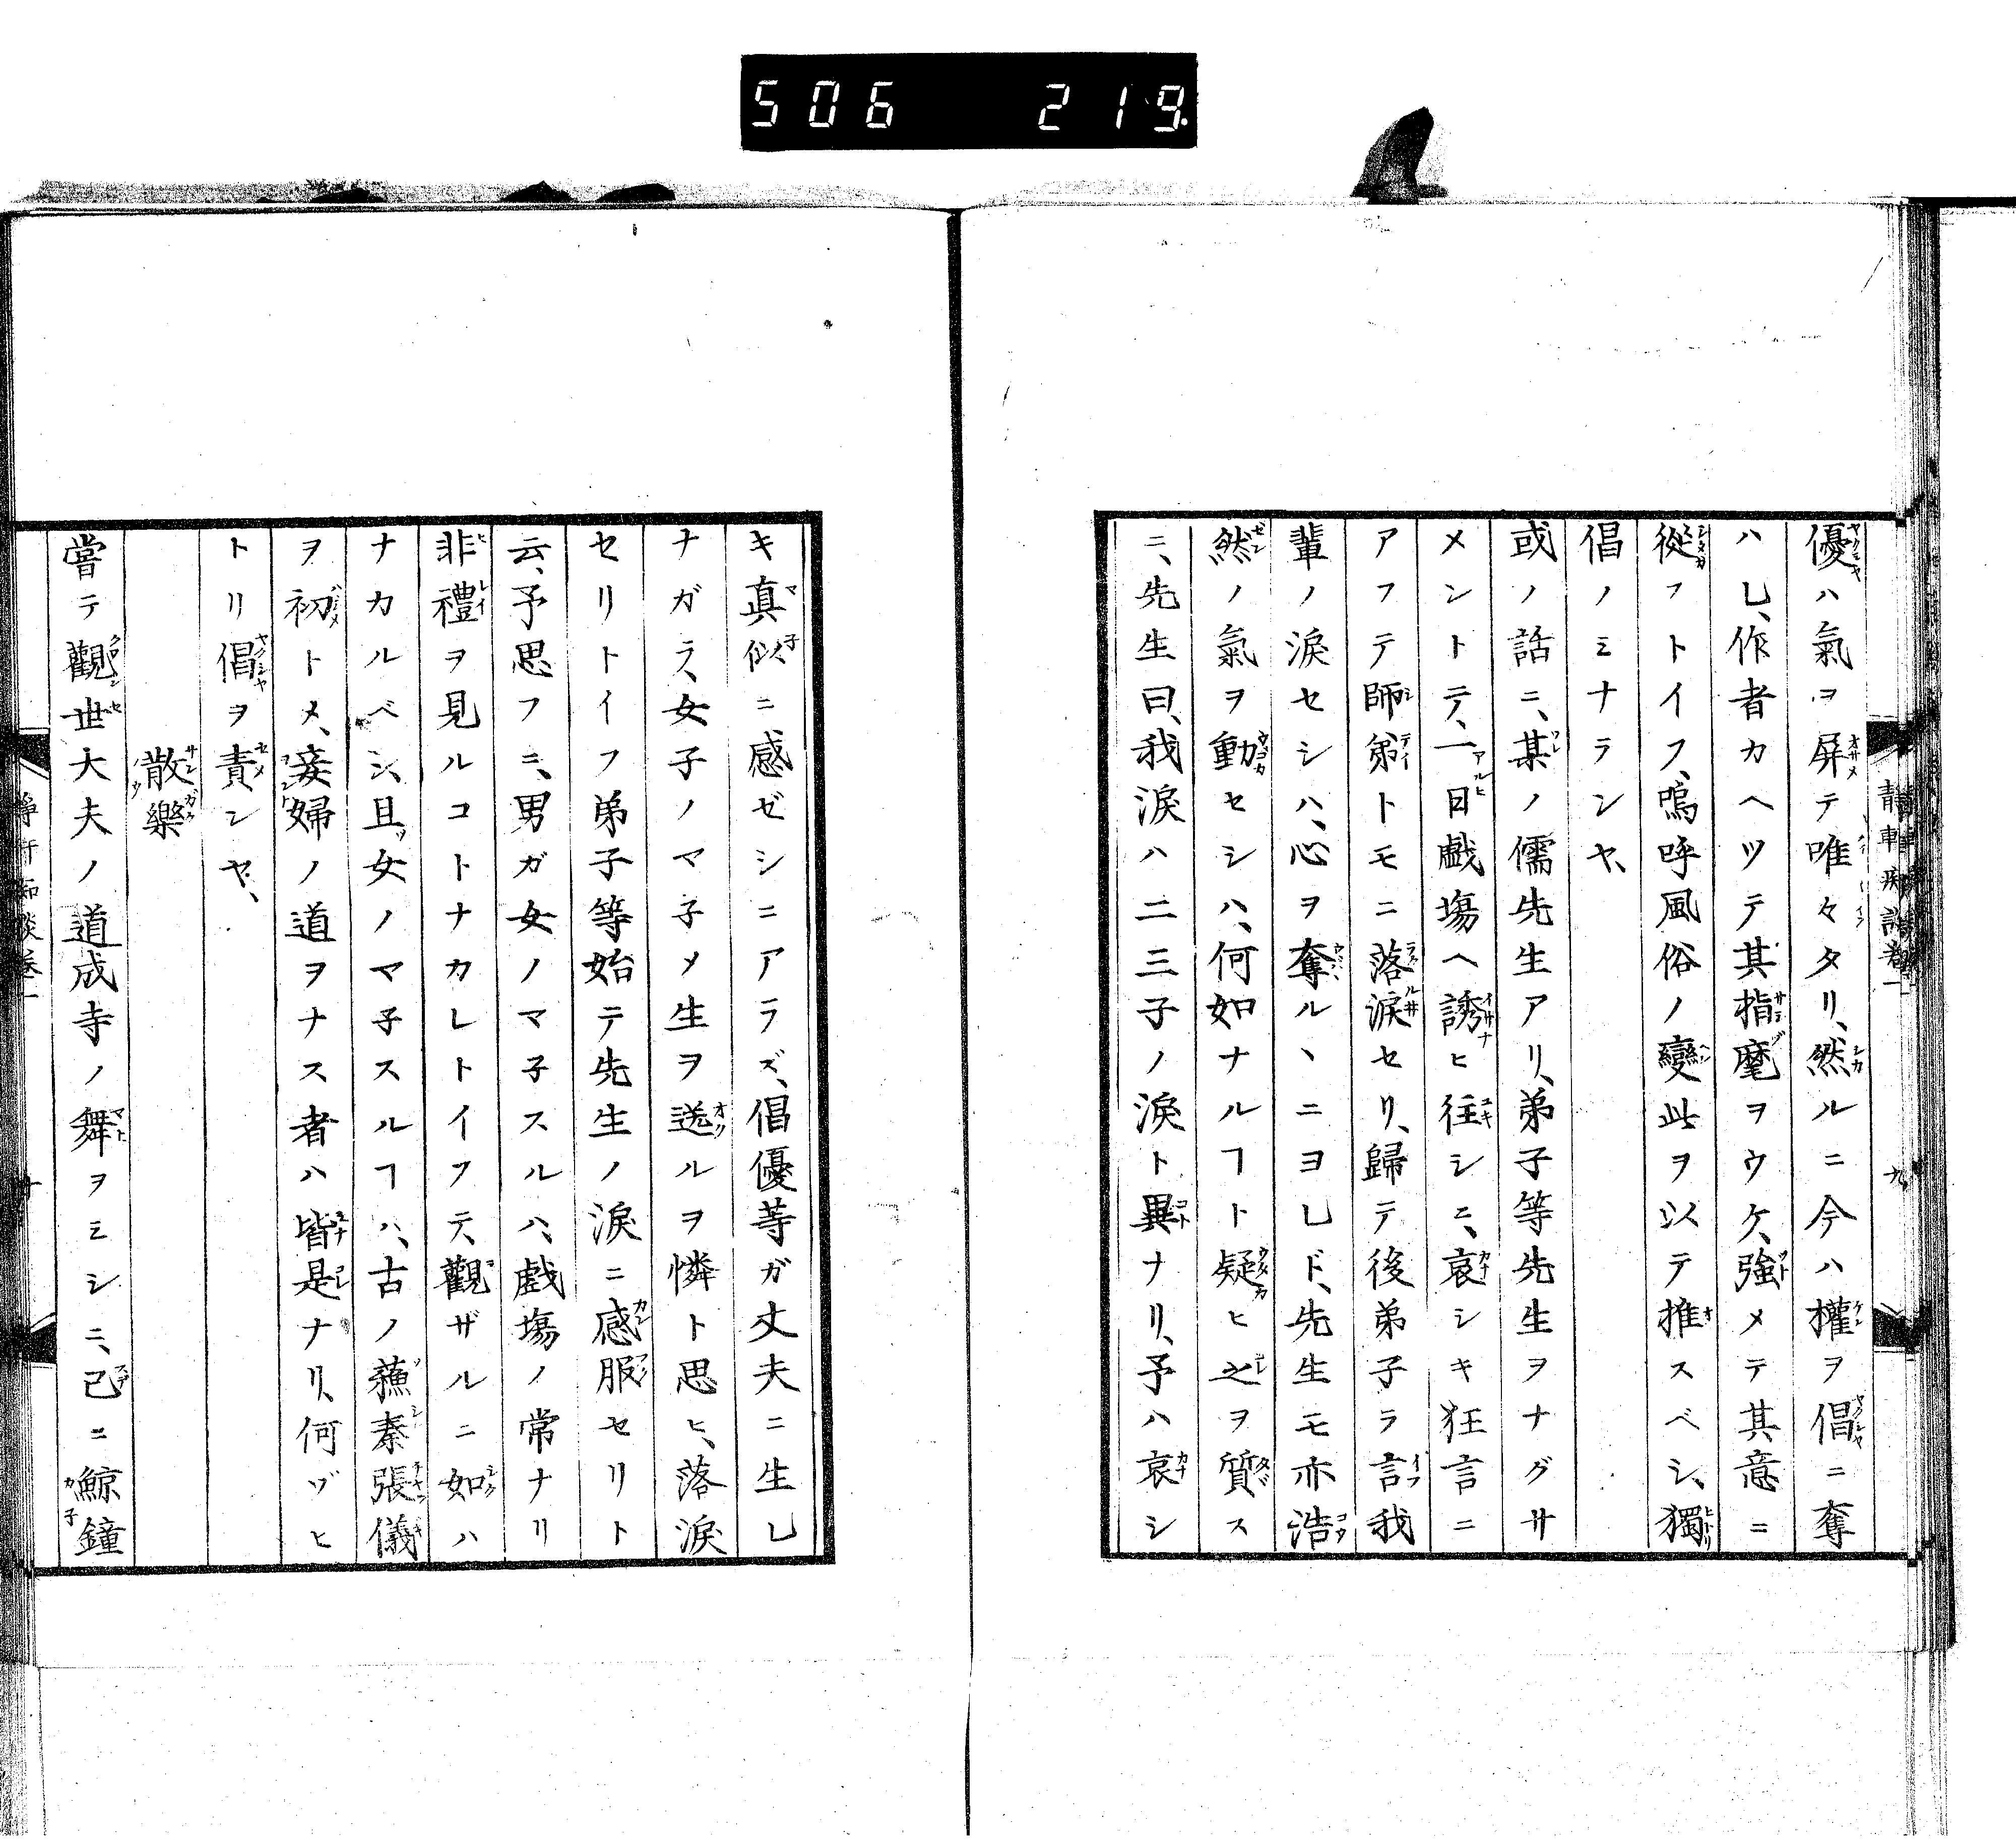 506 219
靜軒痴談卷一
九
優ハ氣ヲ屏テ唯々タリ、然ルニ今ハ權ヲ倡ニ奪
ハレ、作者カヘツテ其指麾ヲウケ、強メテ其意ニ
從フトイフ、嗚呼風俗ノ變此ヲ以テ推スベシ、獨
倡ノミナランヤ、
或ノ話ニ、某ノ儒先生アリ、弟子等先生ヲナグサ
メントテ、一日戲塲ヘ誘ヒ往シニ、哀シキ狂言ニ
アフテ師弟トモニ落淚セリ、歸テ後弟子ラ言我
輩ノ淚セシハ、心ヲ奪ルヽニヨレド、先生モ亦浩
然ノ氣ヲ動セシハ、何如ナルヿト疑ヒ之ヲ質ス
ニ、先生曰、我淚ハ二三子ノ淚ト異ナリ、予ハ哀シ
キ真似ニ感ゼシニアラズ、倡優等ガ丈夫ニ生レ
ナガラ、女子ノマ子メ生ヲ送ルヲ憐ト思ヒ、落淚
セリトイフ弟子等始テ先生ノ淚ニ感服セリト
云、予思フニ、男ガ女ノマ子スルハ、戲塲ノ常ナリ
非禮ヲ見ルコトナカレトイフテ、觀ザルニ如ハ
ナカルベシ、且女ノマ子スルヿハ、古ノ蘓秦張儀
ヲ初トメ、妾婦ノ道ヲナス者ハ皆是ナリ、何ゾヒ
トリ倡ヲ責ンヤ、
散樂
嘗テ觀世大夫ノ道成寺ノ舞ヲミシニ、已ニ鯨鐘
靜軒痴談卷一
十